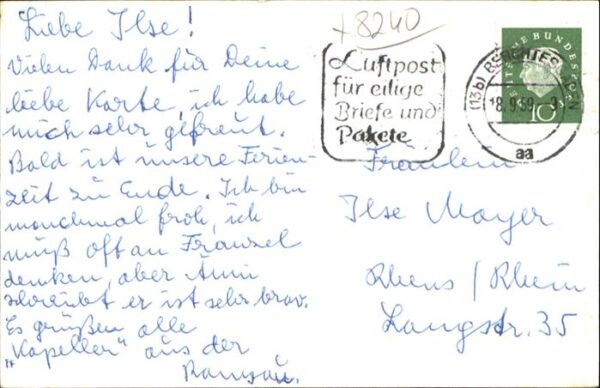 Liebe Ilse!
Vielen Dank für Deine
liebe Karte, ich habe
mich sehr gefreut.
Bald ist unsere Ferien-
zeit zu Ende. Ich bin
manchmal froh, ich
muß oft an Franzel
denken, aber Anni
schreibt er ist sehr brav.
Es grüßen alle
„Kapeller" aus der
Ramsau.
+ 8240
Luftpost
für eilige
Briefe und
Pakete
(13b) BERCHTESGADEN
18.9.59
aa
DEUTSCHE BUNDESPOST
10
Fräulein
Ilse Mayer
Rhens / Rhein
Langstr. 35